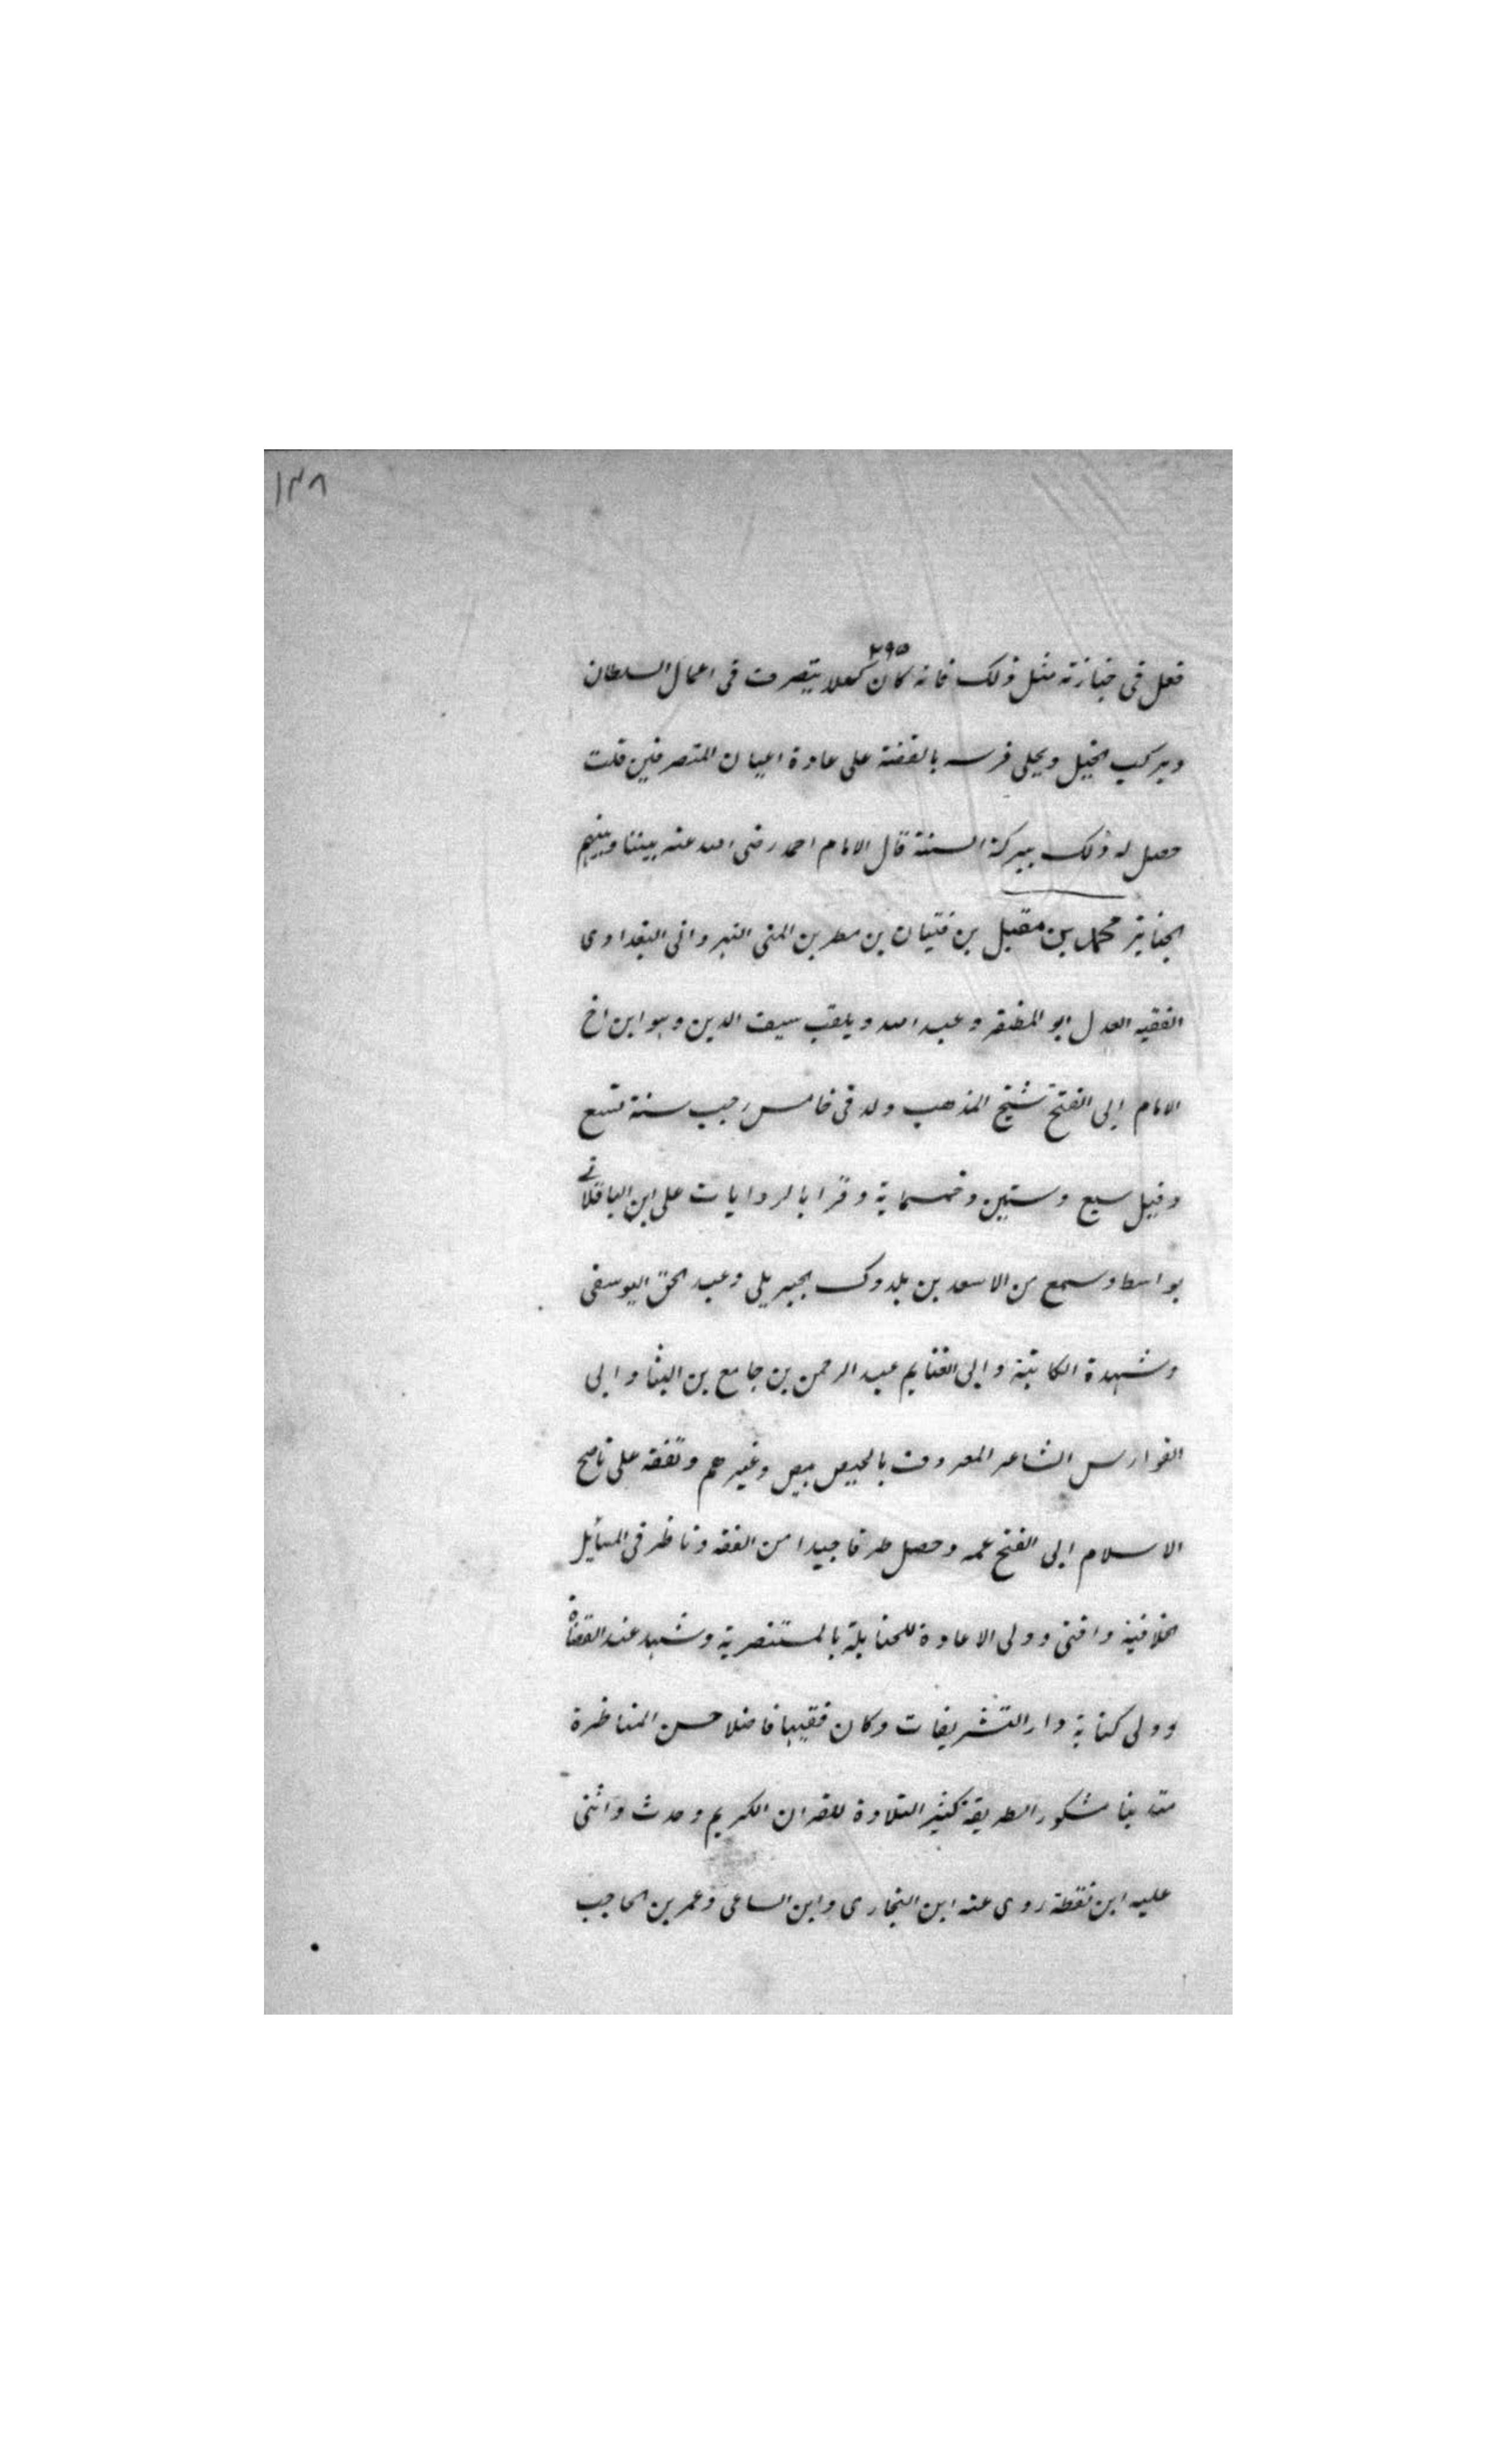 ١٣٨
٢٩٥
فعل فى جنازته مثل ذلك فانه كان كهلا يتصرف فى اعمال السلطان
ويركب الخيل ويحلى فرسه بالفضة على عادة اعيان المتصرفين قلت
حصل له ذلك ببركة السنة قال الامام احمد رضى الله عنه بيننا وبينهم
الجنايز محمد بن مقبل بن فتيان بن مطر بن المنى النهروانى البغدادى
الفقيه العدل ابو المظفر وعبد الله ويلقب سيف الدين وهو ابن اخ
الامام ابى الفتح شيخ المذهب ولد فى خامس رجب سنة تسع
وقيل سبع وستين وخمسماية وقرا بالروايات على ابن الباقلانى
بواسط وسمع من الاسعد بن يلدرك الجبريلى وعبد الحق اليوسفى
وشهدة الكاتبة وابى الغنايم عبد الرحمن بن جامع بن البنا وابى
الفوارس الشاعر المعروف بالحيص بيص وغيرهم وتفقه على ناصح
الاسلام ابى الفتح عمه وحصل طرفا جيدا من الفقه وناظر فى المسايل
الخلافية وافتى وولى الاعادة للحنابلة بالمستنصرية وشهد عند القضاة
وولى كتابة دار التشريفات وكان فقيها فاضلا حسن المناظرة
متدينا مشكور الطريقة كثير التلاوة للقران الكريم وحدث واثنى
عليه ابن نقطة روى عنه ابن النجارى وابن الساعى وعمر بن الحاجب